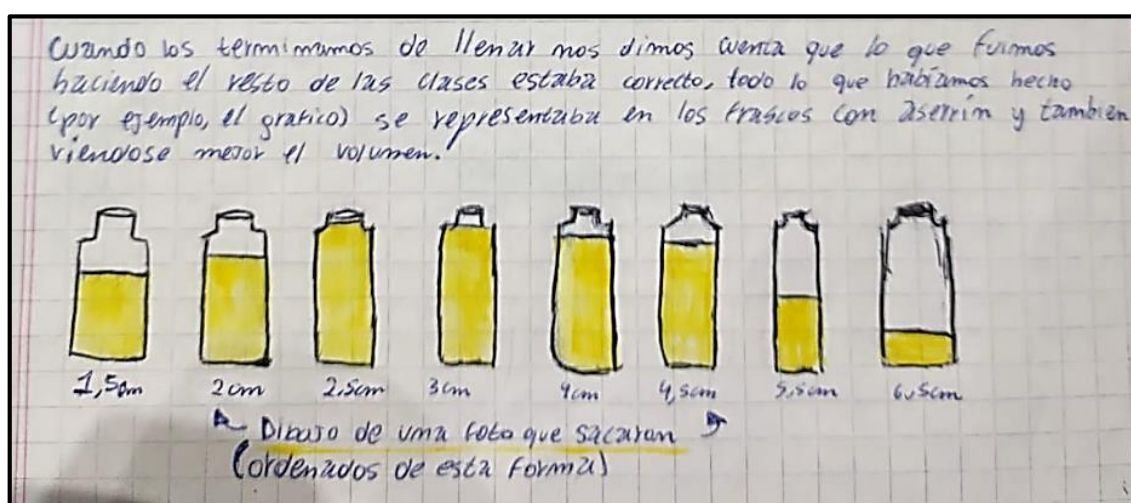 Cuando los termimamos de llenar nos dimos cuenta que lo que fuimos
haciendo el resto de las clases estaba correcto, todo lo que habíamos hecho
(por ejemplo, el grafico) se representaba en los frascos con aserrín y tambien
viendose mejor el volumen.
1,5cm 2cm 2,5cm 3cm 4cm 4,5cm 5,5cm 6,5cm
Dibujo de uma foto que sacaron
(ordenados de esta forma)